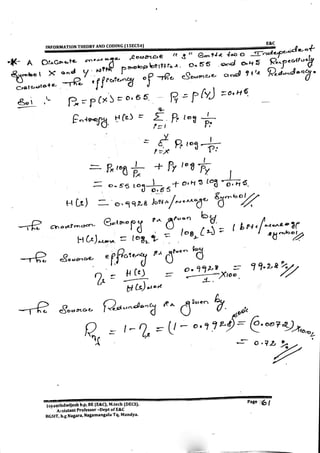 INFORMATION THEORY AND CODING (15EC54) E&C
* A Discrete message source "s" emits two Independent
Symbol X and Y with probabilities 0.55 and 0.45 Respectively
Calculate The efficiency of The Source and it's Redundancy.
Sol: Px = p(x) = 0.55 Py = p(y) = 0.45
Entropy H(s) = Σ Pi log 1/Pi
i=1
= Σ Pi log 1/Pi
i=x
= Px log 1/Px + Py log 1/Py
= 0.55 log 1/0.55 + 0.45 log 1/0.45
H(s) = 0.9928 bits/message symbol//
The maximum Entropy is given by
H(s)max = log₂ q = log₂(2) = 1 bits/message symbol//
The Source efficiency is given by
η = H(s)/H(s)max = 0.9928/1 X100 = 99.28%//
The Source Redundancy is given by
R = 1-η = (1-0.9928) = (0.0072)X100%
= 0.72 %//
Jayanthdwijesh h.p; BE (E&C), M.tech (DECS).
Assistant Professor –Dept of E&C
BGSIT, b.g Nagara, Nagamangala Tq, Mandya.
Page 161